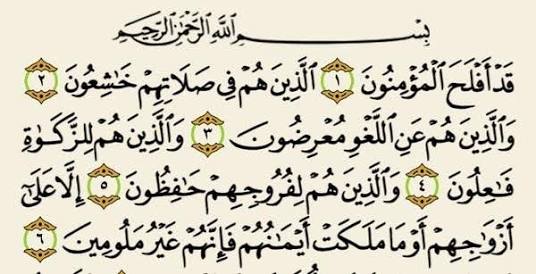 بِسْمِ اللَّهِ الرَّحْمَٰنِ الرَّحِيمِ
قَدْ أَفْلَحَ الْمُؤْمِنُونَ ١ الَّذِينَ هُمْ فِي صَلَاتِهِمْ خَاشِعُونَ ٢
وَالَّذِينَ هُمْ عَنِ اللَّغْوِ مُعْرِضُونَ ٣ وَالَّذِينَ هُمْ لِلزَّكَوٰةِ
فَاعِلُونَ ٤ وَالَّذِينَ هُمْ لِفُرُوجِهِمْ حَافِظُونَ ٥ إِلَّا عَلَىٰ
أَزْوَٰجِهِمْ أَوْ مَا مَلَكَتْ أَيْمَٰنُهُمْ فَإِنَّهُمْ غَيْرُ مَلُومِينَ ٦